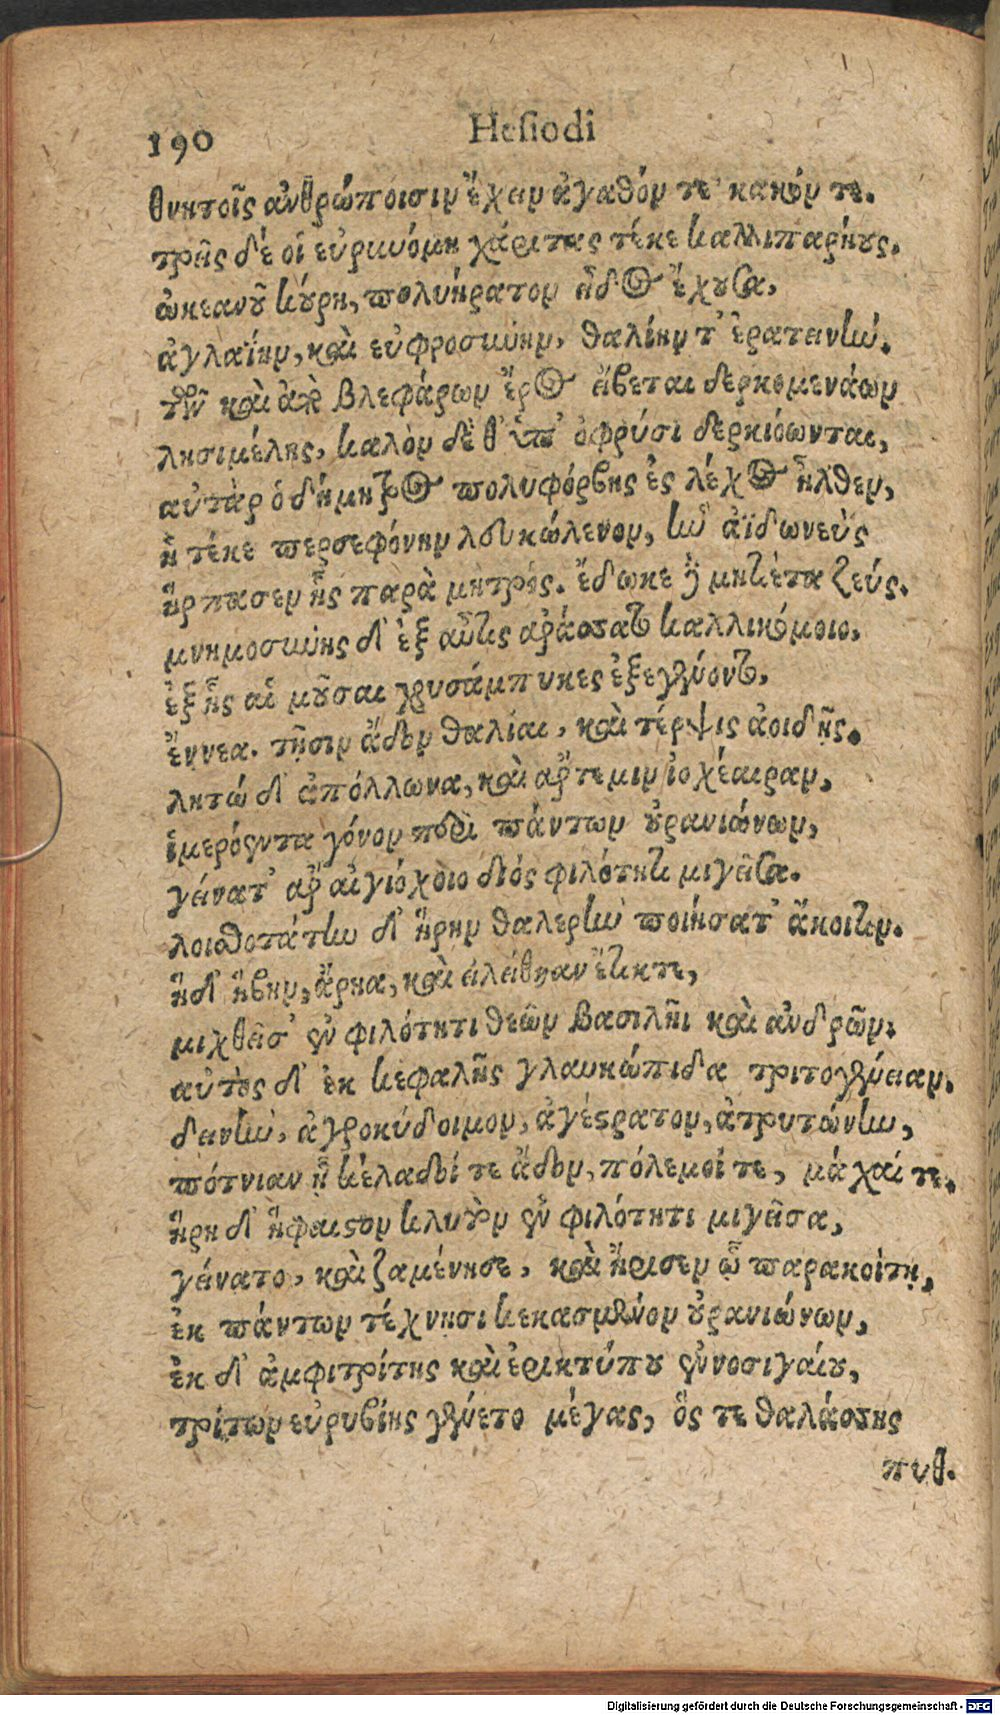 190
Hesiodi
θνητοῖς ἀνθρώποισιν ἔχειν ἀγαθόν τε κακόν τε.
τρεῖς δέ οἱ εὐρυνόμη χάριτας τέκε καλλιπαρήους.
ὠκεανοῦ κούρη, πολυήρατον εἶδος ἔχουσα,
ἀγλαΐην, καὶ εὐφροσύνην, θαλίην τ' ἐρατεινήν.
τῶν καὶ ἀπὸ βλεφάρων ἔρος εἴβεται δερκομενάων
λησιμέλης, καλὸν δέ θ' ὑπ' ὀφρύσι δερκιόωνται,
αὐτὰρ ὁ δήμητρος πολυφόρβης ἐς λέχος ἦλθεν,
ἣ τέκε περσεφόνην λευκώλενον, ἣν ἀϊδωνεὺς
ἥρπασεν ἧς παρὰ μητρός. ἔδωκε δὲ μητίετα ζεύς.
μνημοσύνης δ' ἐξ αὖτις ἐράσσατο καλλικόμοιο,
ἐξ ἧς αἱ μοῦσαι χρυσάμπυκες ἐξεγένοντο,
ἔννεα. τῇσιν ἅδον θαλίαι, καὶ τέρψις ἀοιδῆς.
λητώ δ' ἀπόλλωνα, καὶ ἄρτεμιν ἰοχέαιραν,
ἱμερόεντα γόνον περὶ πάντων οὐρανιώνων,
γείνατ' ἄρ' αἰγιόχοιο διός φιλότητι μιγεῖσα.
λοισθοτάτην δ' ἥρην θαλερὴν ποιήσατ' ἄκοιτιν.
ἡ δ' ἥβην, ἄρηα, καὶ εἰλείθηαν ἔτικτε,
μιχθεῖσ' ἐν φιλότητι θεῶν βασιλῆι καὶ ἀνδρῶν.
αὐτὸς δ' ἐκ κεφαλῆς γλαυκώπιδα τριτογένειαν.
δεινὴν, ἀγροκύδοιμον, ἀγέστρατον, ἀτρυτώνην,
πότνιαν ᾗ κέλαδοί τε ἅδον, πόλεμοί τε, μάχαί τε.
ἥρη δ' ἥφαιστον κλυτὸν ἐν φιλότητι μιγεῖσα,
γείνατο, καὶ ζαμένησε, καὶ ἤρισεν ᾧ παρακοίτῃ,
ἐκ πάντων τέχνησι κεκασμένον οὐρανιώνων,
ἐκ δ' ἀμφιτρίτης καὶ ἐρικτύπου ἐννοσιγαίου,
τρίτων εὐρυβίης γένετο μέγας, ὅς τε θαλάσσης
πυθ.
Digitalisierung gefördert durch die Deutsche Forschungsgemeinschaft - DFG